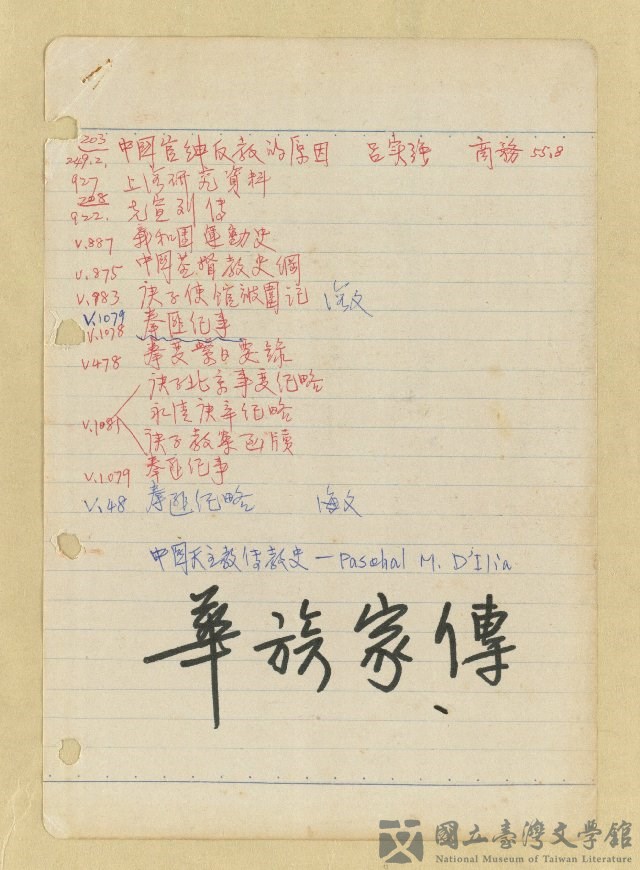 203
249.2. 中國官紳反教的原因 呂实強 商務 55.8
927 上海研究資料
228
922. 先宣列傳
V.887 義和团運動史
V.875 中国基督教史綱
V.983 庚子使館被圍記 海文
V.1079
V.1078 拳匪紀事
V.478 拳变禁日要錄
庚子北京事变紀略
V.1081 永清庚辛紀略
庚子教案函牘
V.1079 拳匪紀事
V.48 拳匪紀略 海文
中国天主教傳教史—Paschal M. D'Elia
華族家傳
國立臺灣文學館
National Museum of Taiwan Literature